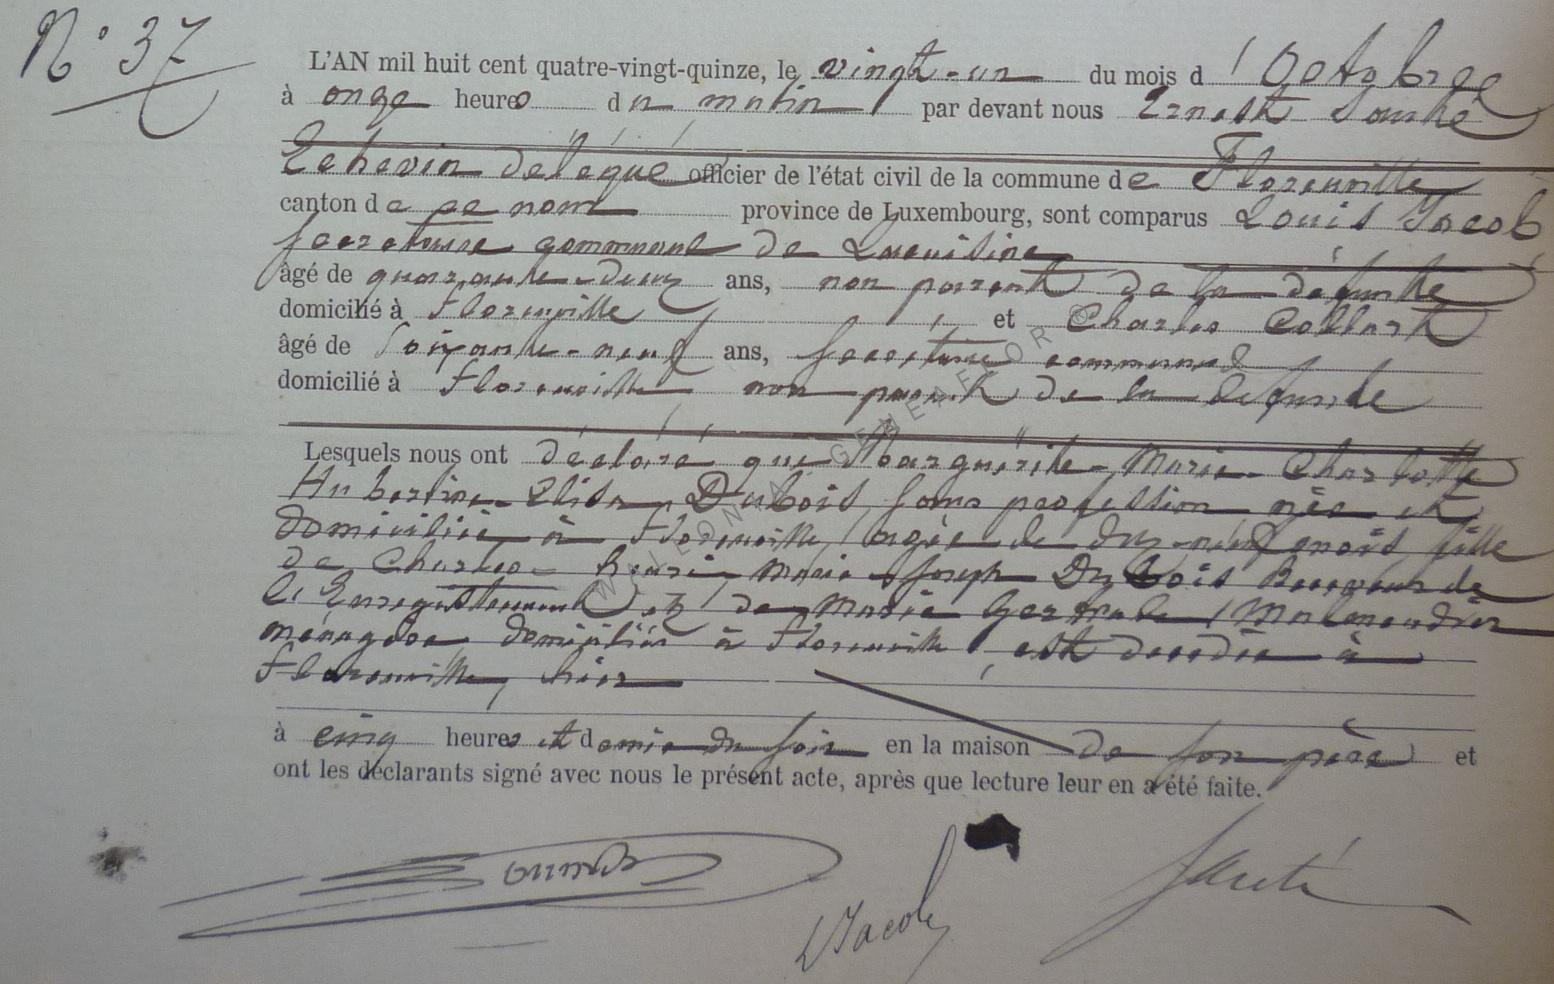 N° 37
L'AN mil huit cent quatre-vingt-quinze, le vingt-un du mois d'Octobre
à onze heures du matin par devant nous Ernest
Echevin délégué officier de l'état civil de la commune de Florenville
canton de ce nom province de Luxembourg, sont comparus Louis Jacob
secrétaire communal de
âgé de quarante-deux ans, non parent de la défunte
domicilié à Florenville et Charles Collart
âgé de soixante-neuf ans, secrétaire communal
domicilié à Florenville non parent de la defunte
Lesquels nous ont déclaré que Marguerite-Marie-Charlotte
Hubertine-Elisa Dubois, sans profession née et
domiciliée à Florenville, agée de dix-neuf mois fille
de Charles-Henri-Marie-Joseph Dubois Receveur de
l'Enregistrement et de Marie Gertrude Malmendier
ménagère domiciliés à Florenville, est décédée à
Florenville, hier
à cinq heures et demie du soir en la maison de son père et
ont les déclarants signé avec nous le présent acte, après que lecture leur en a été faite.
LJacob